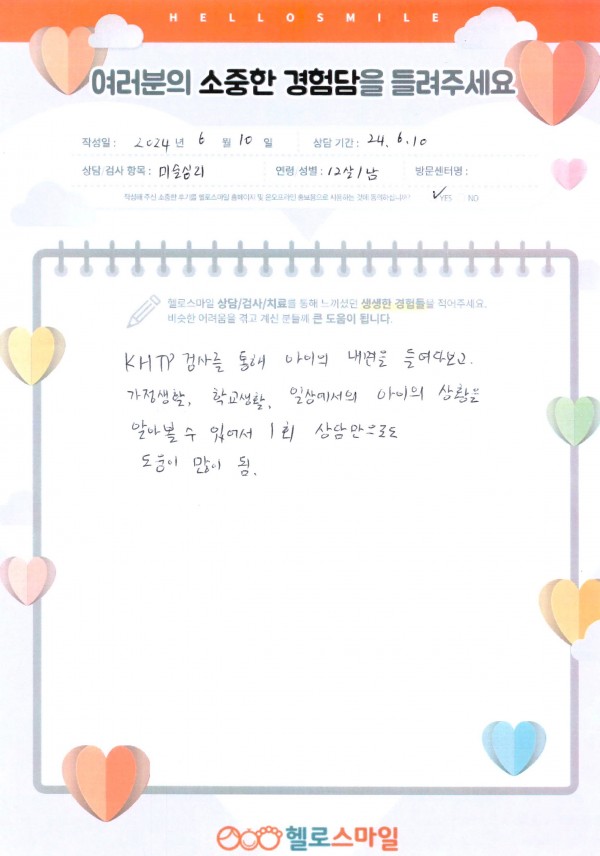 HELLOSMILE
여러분의 소중한 경험담을 들려주세요
작성일 : 2024 년 6 월 10 일 상담 기간 : 24. 6. 10
상담/검사 항목 : 미술심리 연령/성별 : 12살/남 방문센터명 :
작성해 주신 소중한 후기를 헬로스마일 홈페이지 및 온오프라인 홍보용으로 사용하는 것에 동의하십니까? ✓YES NO
헬로스마일 상담/검사/치료를 통해 느끼셨던 생생한 경험들을 적어주세요.
비슷한 어려움을 겪고 계신 분들께 큰 도움이 됩니다.
KHTP 검사를 통해 아이의 내면을 들여다보고.
가정생활, 학교생활, 일상에서의 아이의 상황을
알아볼 수 있어서 1회 상담만으로도
도움이 많이 됨.
헬로스마일